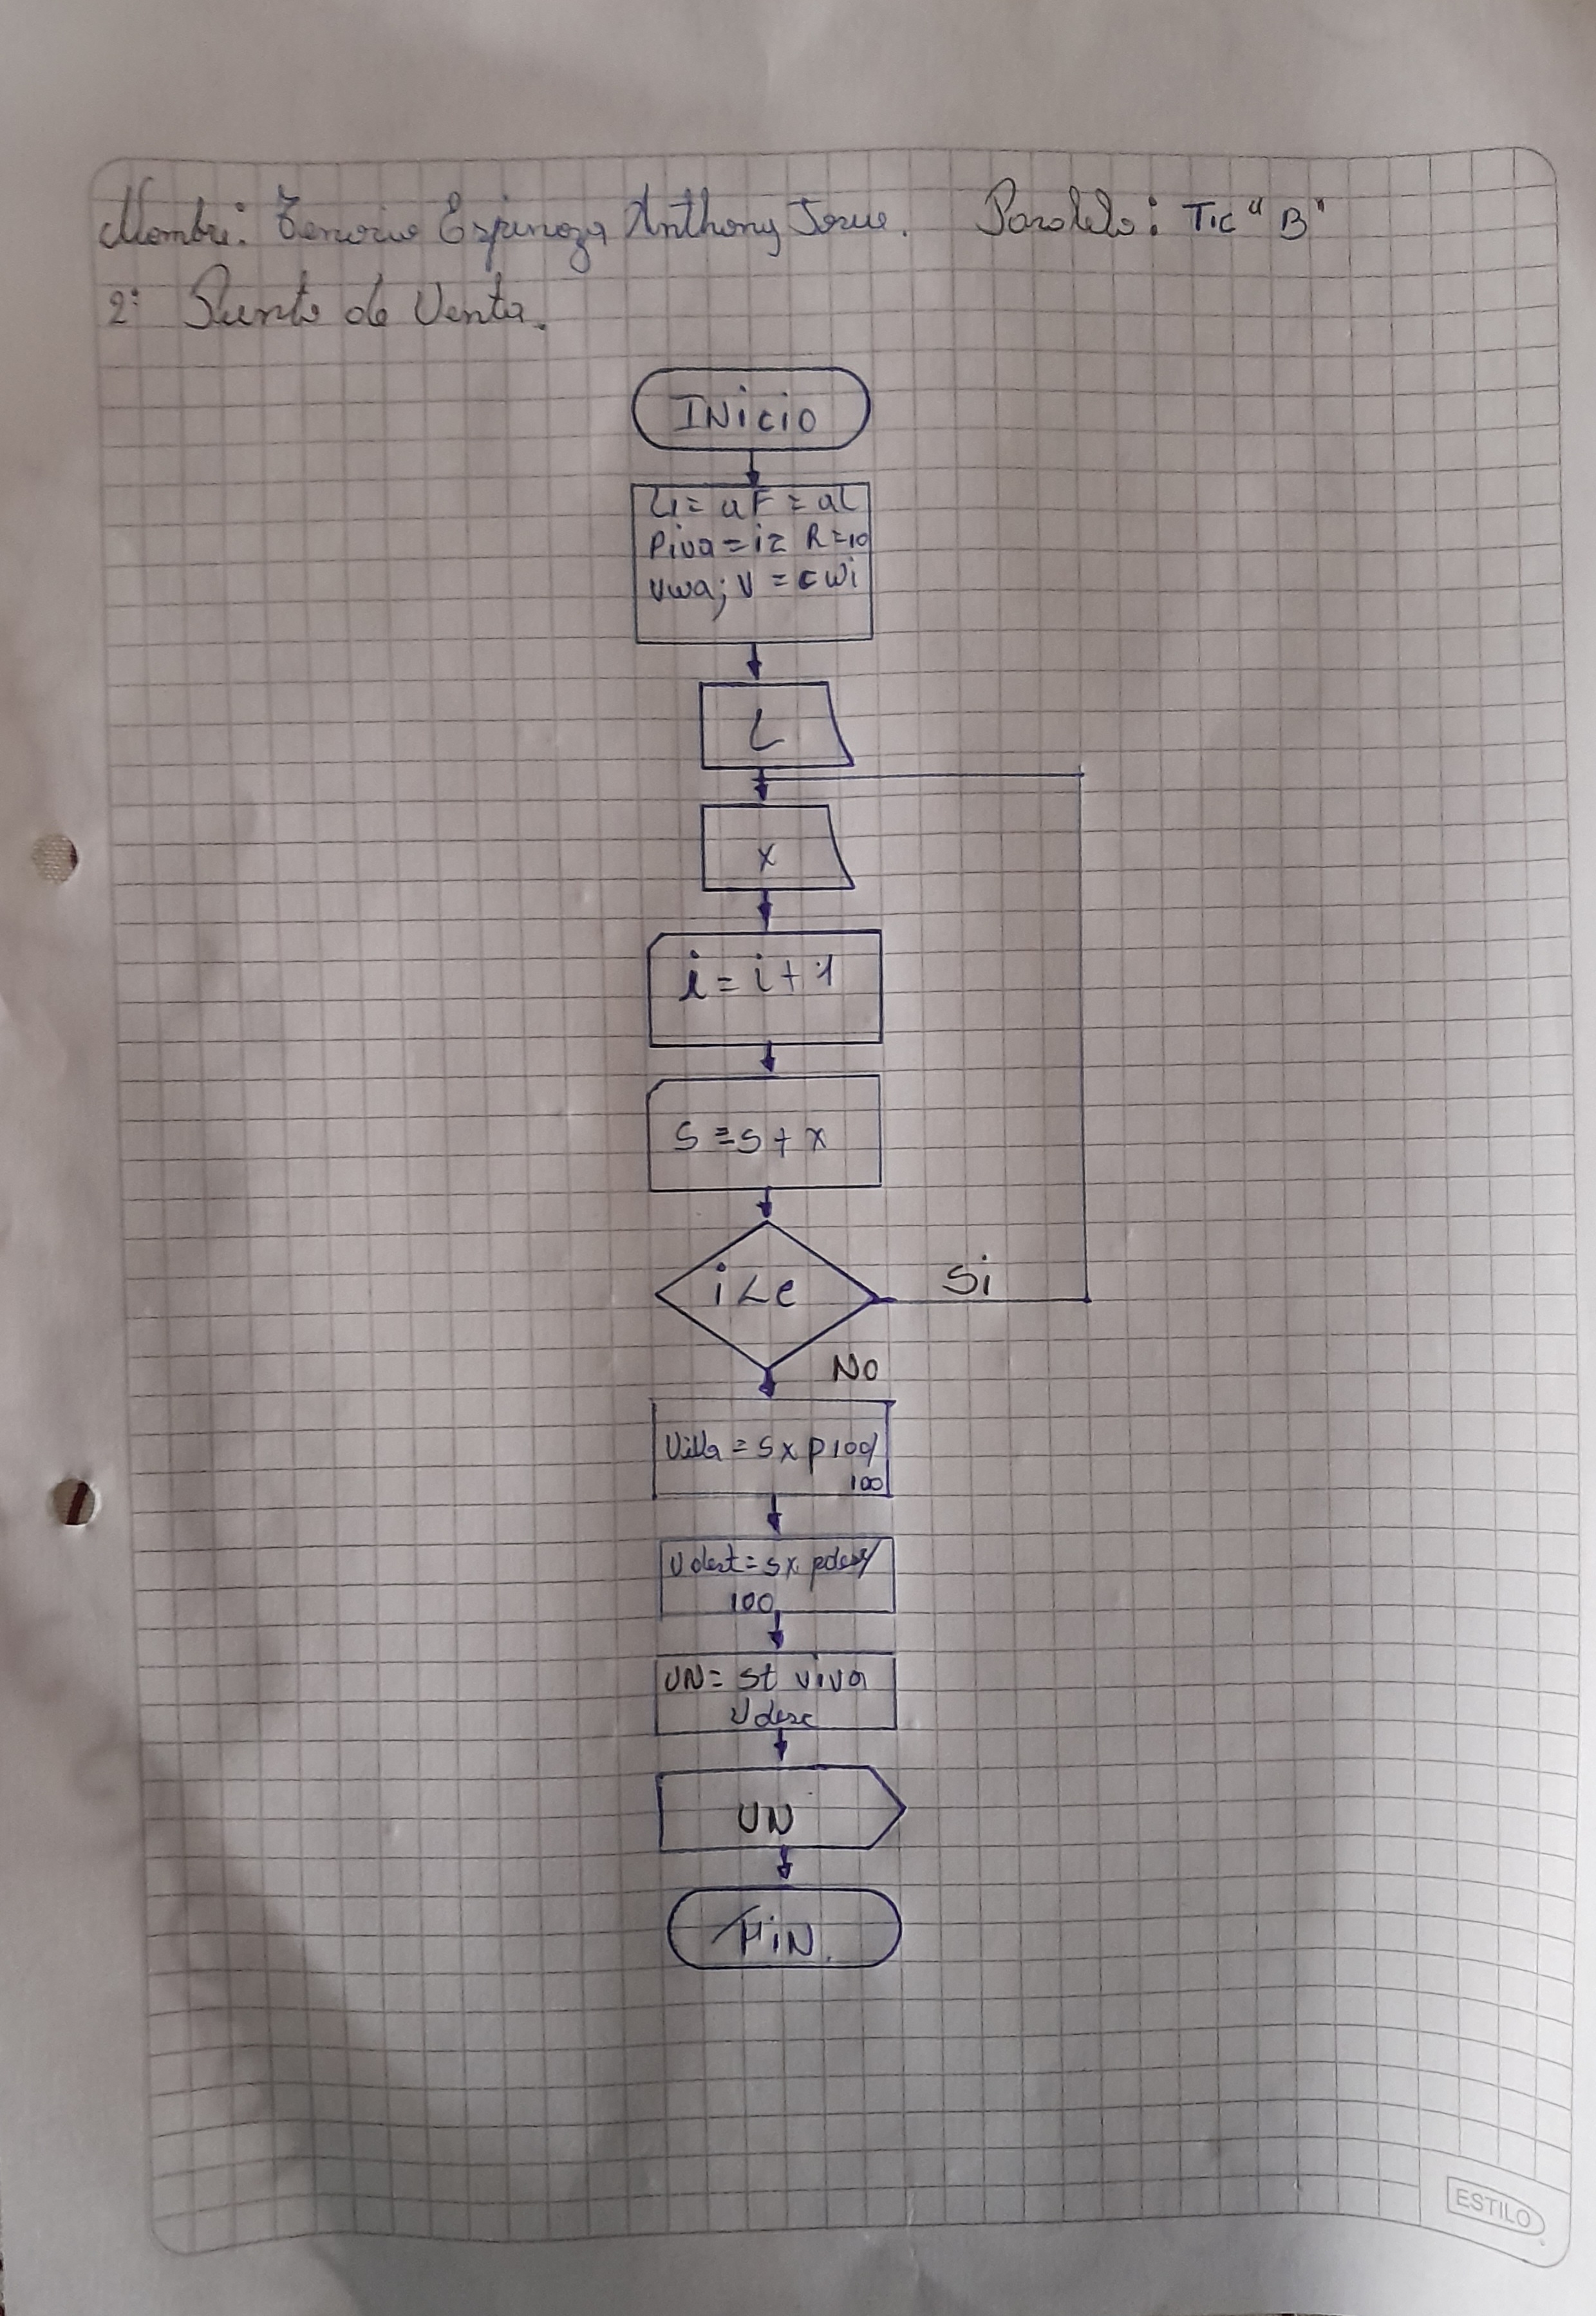 Nombre: Tenorio Espinoza Anthony Josue. Paralelo: Tic "B"
2: Punto de Venta.
INicio
Piva = i2 R=10
L
x
i = i + 1
S = S + x
i < e
Si
No
100
Vdest = s x pdesc/
100
VN = st viva
Vdesc
VN
FiN.
ESTILO